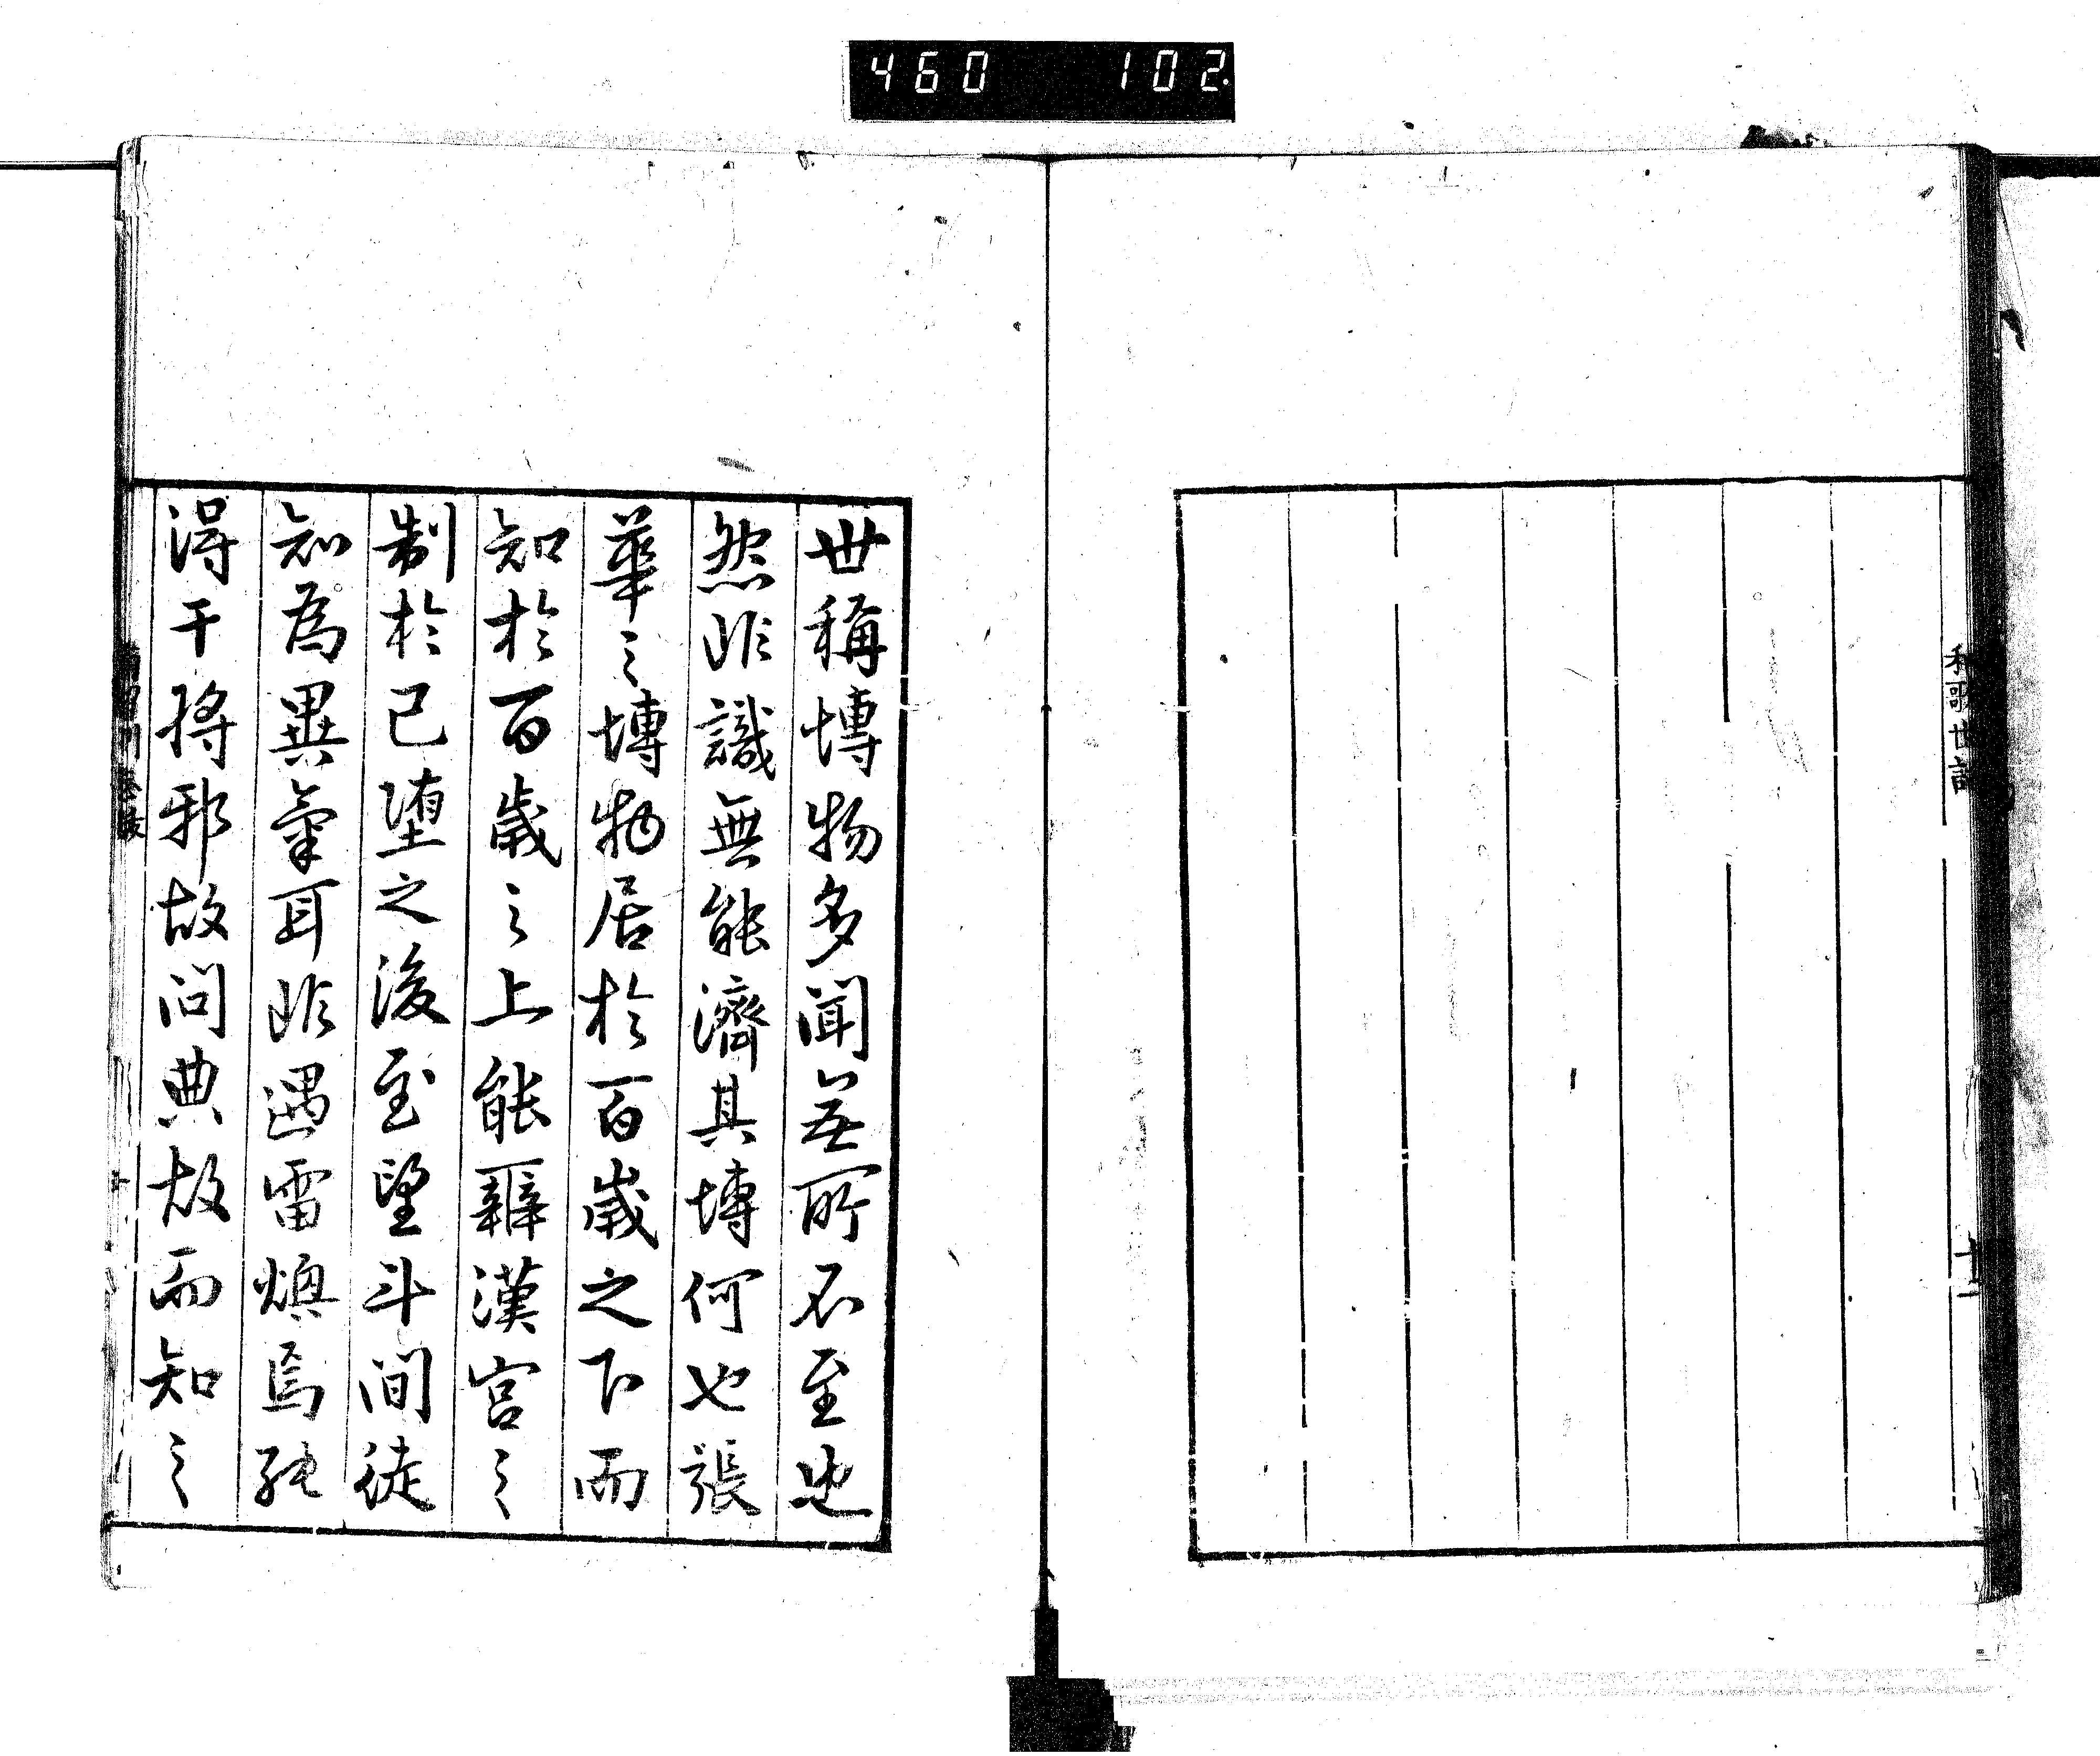 460 102
和歌世話
十二
世稱博物多聞無所不至也
然非識無能濟其博何也張
華之博物居於百歲之下而
知於百歲之上能辨漢宮之
制於已墮之後至望斗間徒
知為異氣耳非遇雷煥焉能
得干將邪故問典故而知之